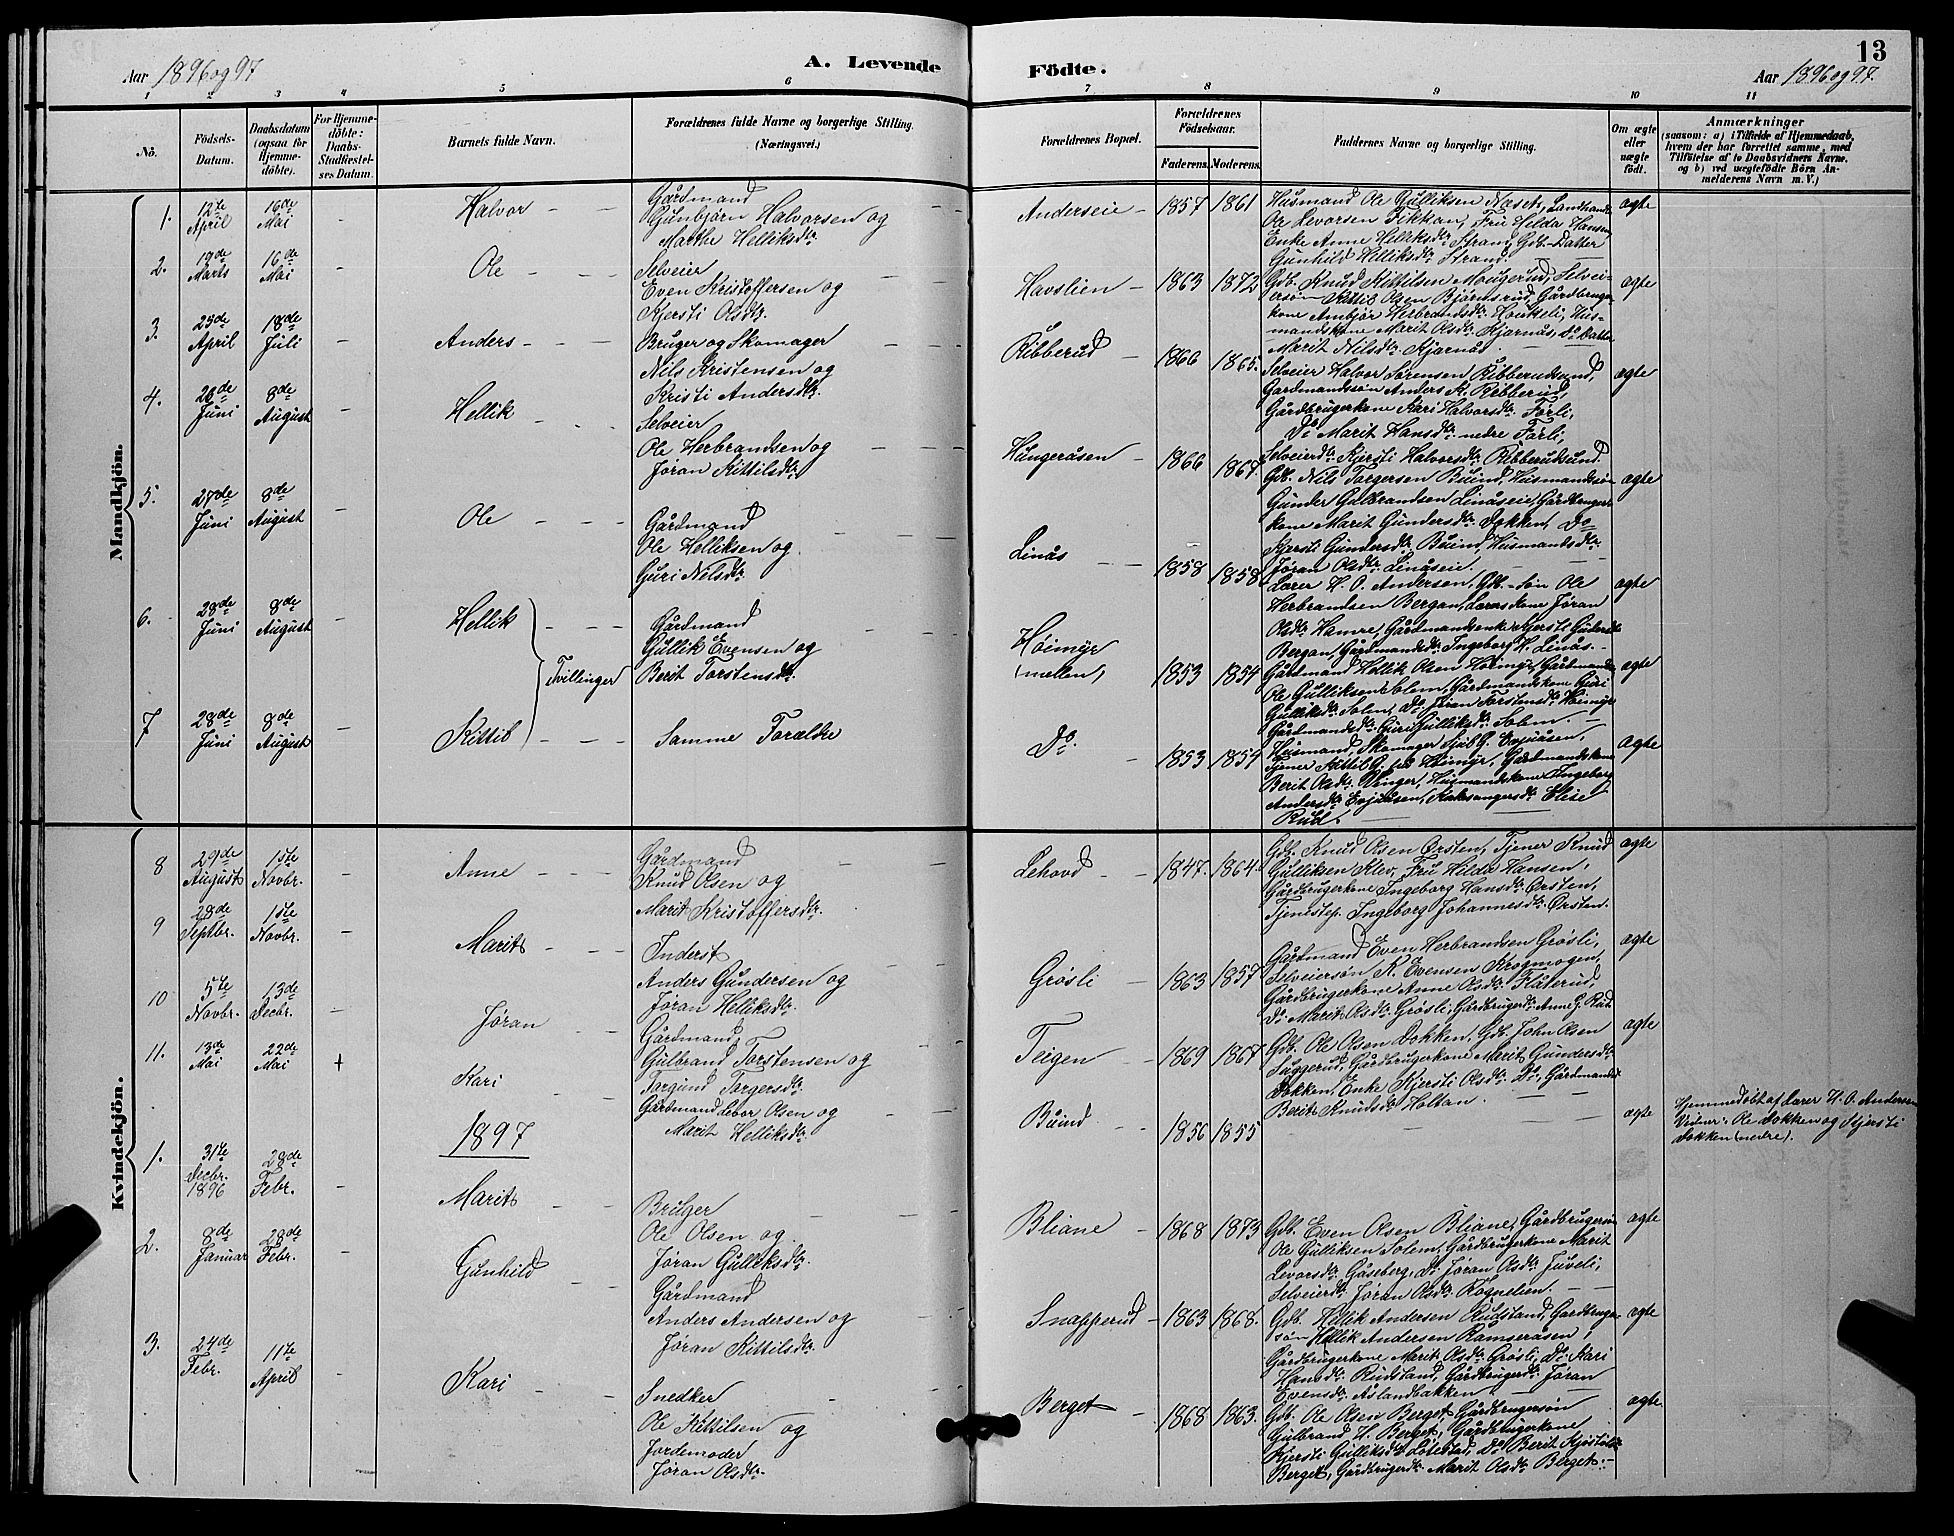 13
Aar 1896 og 97
A. Levende Födte.
Aar 1896 og 97.
1 2 3 4 5 6 7 8 9 10 11
Nö.
Födsels-Datum.
Daabsdatum (ogsaa for Hjemme-döbte).
For Hjemme-döbte: Daabs-Stadfæstel-ses Datum.
Barnets fulde Navn.
Forældrenes fulde Navne og borgerlige Stilling. (Næringsvei.)
Forældrenes Bopæl.
Forældrenes Födselsaar.
Faderens. Moderens.
Faddernes Navne og borgerlige Stilling.
Om ægte eller uægte födt.
Anmærkninger
(saasom: a) i Tilfælde af Hjemmedaab, hvem der har forrettet samme, med Tilföielse af to Daabsvidners Navne. og b) ved uægtefödte Börn An-melderens Navn m. V.)
Mandkjön.
1. 12te April 16de Mai - Halvor
Gårdmand
Gunbjørn Halvorsen og
Marthe Helliksdtr.
Anderseie - 1857 1861
Husmand Ole Gulliksen Næset, Landhandl.
Ole Levorsen Fikkan, Fru Hilda Hansen
Enke Anne Helliksdtr. Strand, Gdb.-Datter
Gunhild Helliksdtr. Strand.
ægte
2. 19de Marts 16de Mai - Ole
Selveier
Even Kristoffersen og
Kjersti Olsdtr.
Havslien - 1863 1872
Gdb. Knud Kittilsen Mougerud, Selvei-
ersön Kittil Olsen Bjørnsrud, Gårdbruger-
kone Ambjør Herbrandsdtr. Houkeli, Hus-
mandskone Marit Olsdtr. Kjørnås, Do Datter
Marit Nilsdtr. Kjørnås
ægte
3. 23de April 18de Juli - Anders
Bruger og Skomager
Nils Kristensen og
Kristi Andersdtr.
Ribberud - 1866 1865.
Selveier Halvor Sørensen Ribberudsund,
Gårdmandssøn Anders K. Ribberud,
Gårdbrugerkone Kari Halvorsdtr. Førli,
Do Marit Hansdtr. nedre Førli,
Selveierdtr. Kjersti Halvorsdtr. Ribberudsund
ægte
4. 20de Juni 8de August - Hellik
Selveier
Ole Herbrandsen og
Jøran Kittilsdtr.
Hungeråsen - 1866 1867.
Gdb. Nils Torgersen Buind, Husmandssøn
Gunder Gulbrandsen Linåseie, Gårdbruger-
kone Marit Gundersdtr. Dokken, Do
Kjersti Gundersdtr. Buind, Husmandsdtr.
Jøran Olsdtr. Linåseie.
ægte
5. 27de Juni 8de August - Ole
Gårdmand
Ole Helliksen og
Guri Nilsdtr.
Linås 1858 1858
Lærer H. O. Andersen, Gdb.-Søn Ole
Herbrandsen Bergan, Lærerskone Jøran
Olsdtr. Hamre, Gårdmandsenke Kjersti Gulersdtr
Bergan, Gårdmandsdtr. Ingeborg H. Linås.
ægte
6. 28de Juni 8de August - Hellik
Tvillinger
Gårdmand
Gullik Evensen og
Berit Torstensdtr.
Høimyr (mellem) 1853 1854
Gårdmand Hellik Olsen Høimyr, Gårdmand
Ole Gulliksen Solem, Gårdmandskone Guri
Gulliksdtr. Solem, Do Jøran Torstensdtr. Høimyr
Gårdmandsdtr. Guri Gulliksdtr. Solem.
ægte
7 28de Juni 8de August - Kittil
Samme Forældre
Do. - 1853 1854
Husmand, Skomager Sjul G. Evjuåsen,
Tjener Kittil G. på Høimyr, Gårdmandskone
Berit Olsdtr. Ringer, Husmandskone Ingeborg
Andersdtr. Evjuåsen, Kirkesangersdtr. Elise
Rud.
ægte
Kvindekjön.
8 29de August 1ste Novbr. - Anne
Gårdmand
Knud Olsen og
Marit Kristoffersdtr.
Lehovd - 1847. 1864.
Gdb. Knud Olsen Ørsten, Tjener Knud
Gulliksen Klev, Fru Hilda Hansen,
Gårdbrugerkone Ingeborg Hansdtr. Ørsten,
Tjenestep. Ingeborg Johannesdtr. Ørsten.
ægte
9 28de Septbr. 1ste Novbr. - Marit
Inderst
Anders Gundersen og
Jøran Helliksdtr.
Grøsli - 1863 1857
Gårdmand Even Herbrandsen Grøsli,
Selveiersøn K. Evensen Krogmogen,
Gårdbrugerkone Anne Olsdtr. Flåterud,
Do Marit Olsdtr. Grøsli, Gårdbrugerdtr. Anne G. Rud.
ægte
10 5te Novbr. 13de Decbr. - Jøran
Gårdmand
Gulbrand Torstensen og
Torgund Torgersdtr.
Teigen - 1869 1867
Gdb. Ole Olsen Dokken, Gdb. John Olsen
Suggerud, Gårdbrugerkone Marit Gundersdtr.
Dokken, Enke Kjersti Olsdtr. Do, Gårdmandsd.
Berit Knudsdtr. Holtan.
ægte
11. 13de Mai 22de Mai + Kari
Gårdmand Levor Olsen og
Marit Helliksdtr.
Buind 1856 1855
ægte
Hjemmedøbt af Lærer H. O. Andersen
Vidner: Ole Dokken og Kjersti
Dokken (nedre).
1897
1. 31te Decbr. 1896 28de Febr. - Marit
Bruger
Ole Olsen og
Jøran Gulliksdtr.
Bliane - 1868 1873
Gdb. Even Olsen Bliane, Gårdbrugersøn
Ole Gulliksen Solem, Gårdbrugerkone Marit
Levorsdtr. Gåseberg, Do Jøran Olsdtr. Juveli,
Selveierdtr. Jøran Olsdtr. Rognelien.
ægte
2. 8de Januar 28de Febr. - Gunhild
Gårdmand
Anders Andersen og
Jøran Kittilsdtr.
Snapperud - 1863 1868.
Gdb. Hellik Andersen Rudstand, Gårdbruger-
søn Hellik Andersen Ramseråsen,
Gårdbrugerkone Marit Olsdtr. Grøsli, Do Kari
Hansdtr. Rudstand, Gårdbrugerdtr. Jøran
Evensdtr. Åslandbakken
ægte
3. 24de Febr. 11te April - Kari
Snedker
Ole Kittilsen og
Jordemoder
Jøran Olsdtr.
Berget - 1868 1863.
Gdb. Ole Olsen Berget, Gårdbrugersøn
Gulbrand H. Berget, Gårdbrugerkone
Kjersti Gulliksdtr. Løtestad, Do Berit Kjøstolsdtr
Berget, Gårdbrugerdtr. Marit Olsdtr. Berget.
ægte